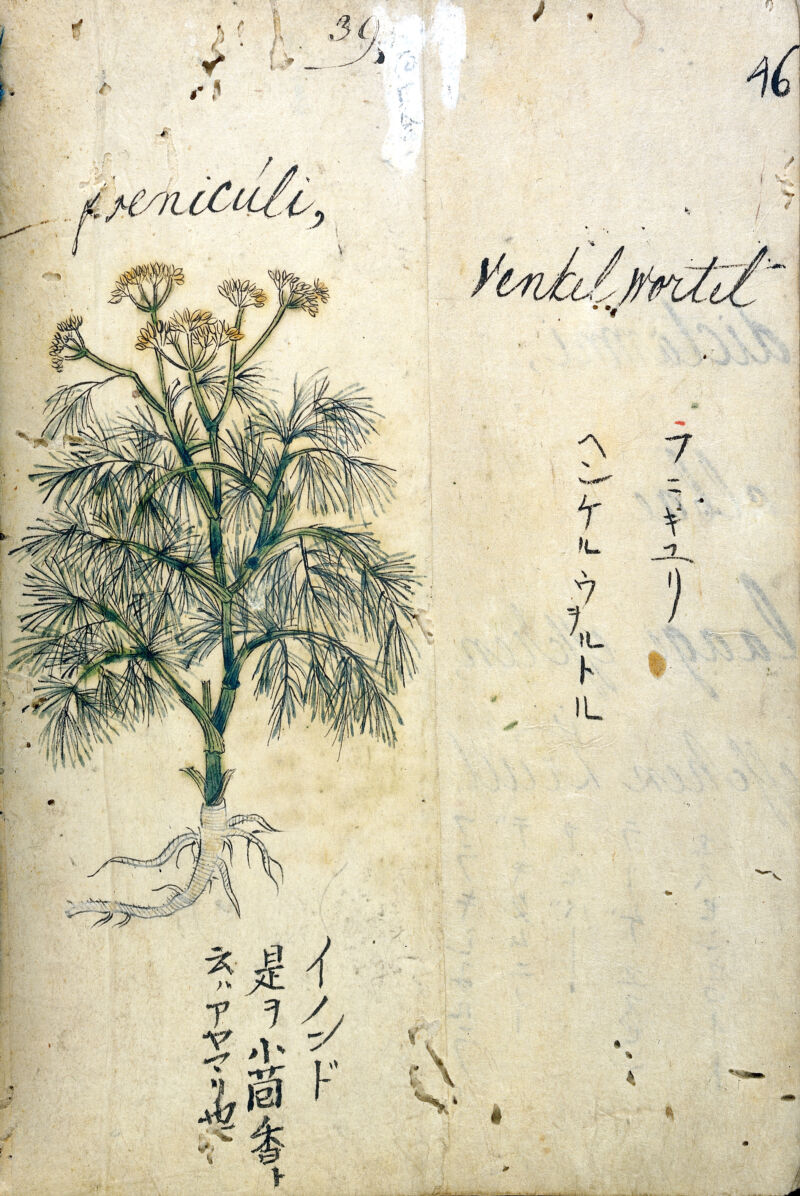 39,
46
freniculi,
Venkel wortel
フニキユリ
ヘンケルウヲルトル
イノンド
是ヲ小茴香ト
云ハアヤマリ也